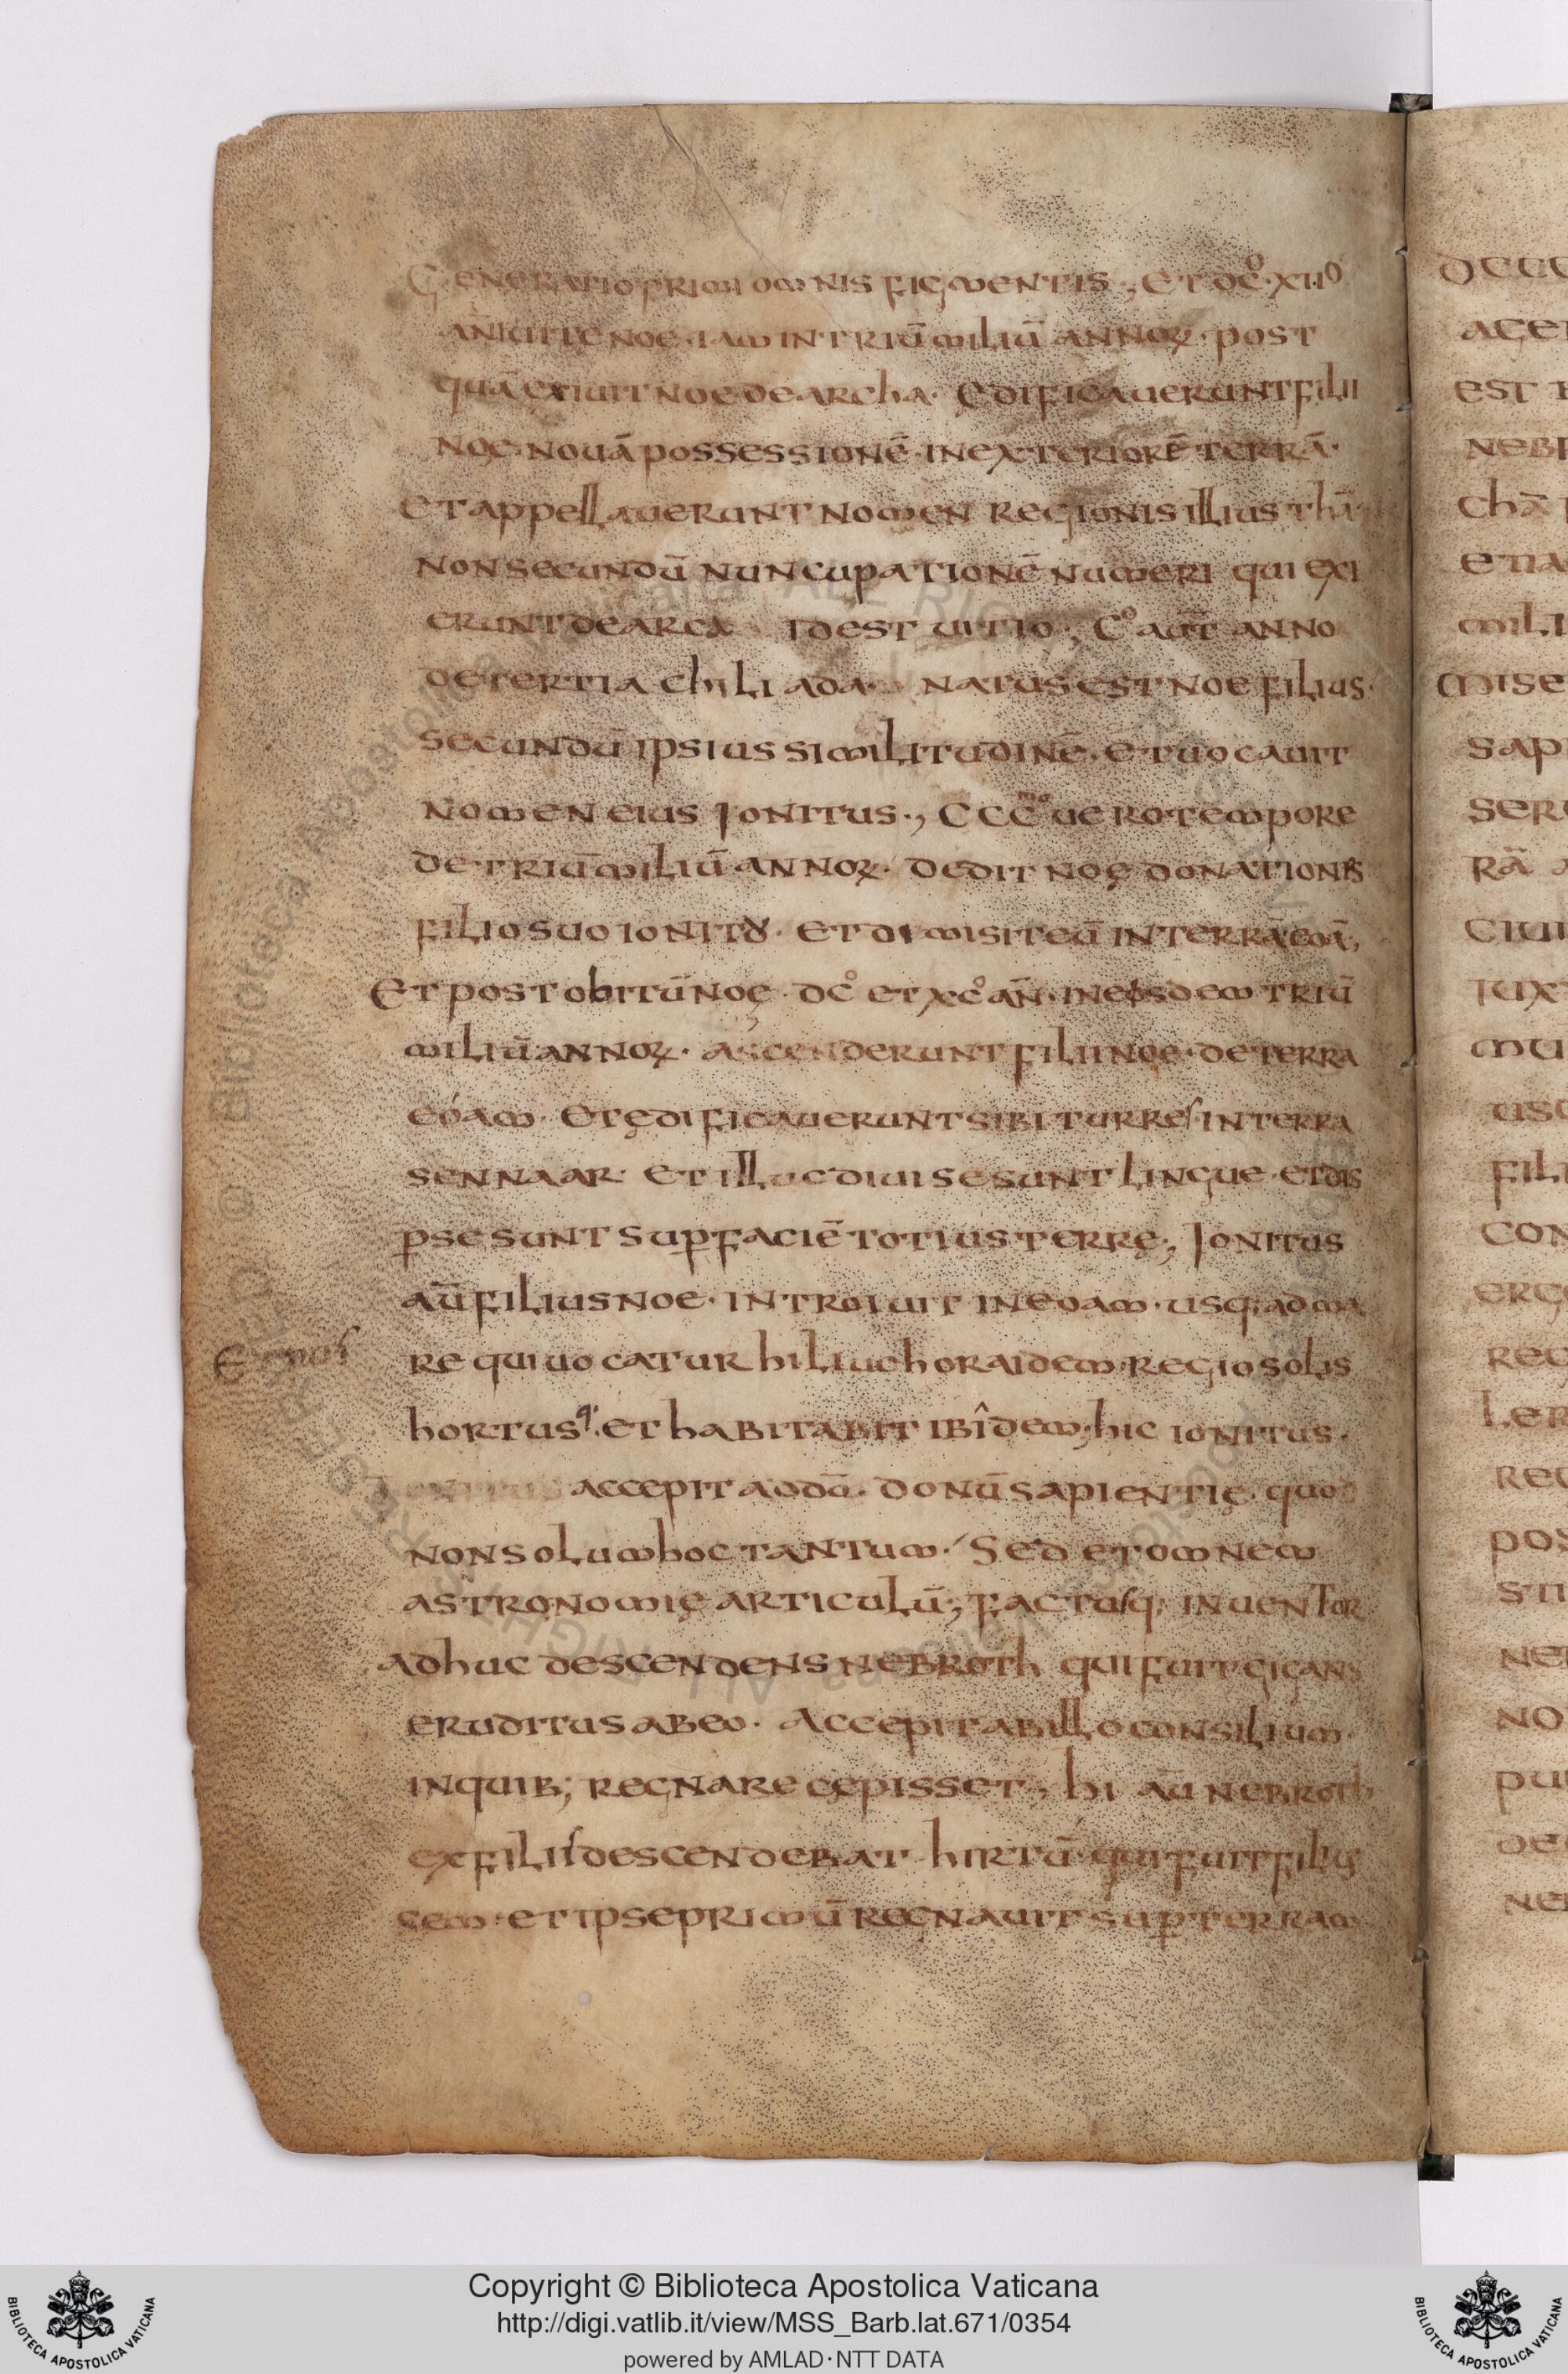 GENERATIO PRIMI OMNIS FIGMENTIS., ET DC̊. XII⁰
AÑI UITE NOE. IAM IN TRIŪ MILIŪ ANNOꝜ. POST
QUĀ EXIUIT NOE DE ARCHA. EDIFICAUERUNT FILII
NOE NOUĀ POSSESSIONĒ. IN EXTERIORĒ TERRĀ.
ET APPELLAUERUNT NOMEN REGIONIS ILLIUS THĀ
NON SECUNDŪ NUNCUPATIONĒ NUMERI QUI EXI
ERUNT DE ARCA ID EST UITIO., C̊ AUT̄ ANNO
DE TERTIA CHILIADA. NATUS EST NOE FILIUS.
SECUNDŪ IPSIUS SIMILITUDINĒ. ET UOCAUIT
NOMEN EIUS IONITUS., CCC̄ᵐᵒ UERO TEMPORE
DE TRIŪ MILIŪ ANNOꝜ. DEDIT NOĘ DONATIONIS
FILIO SUO IONITO. ET DIMISIT EŪ IN TERRĀ EOĀ,
ET POST OBITŪ NOĘ. DC̊ ET XC̊ AÑ. IN EOSDEM TRIŪ
MILIŪ ANNOꝜ. ASCENDERUNT FILII NOE. DE TERRA
EÓAM. ET ĘDIFICAUERUNT SIBI TURRES IN TERRA
SENNAAR. ET ILLUC DIUISE SUNT LINGUE. ET DIS
ꝑSE SUNT SUꝑ FACIĒ TOTIUS TERRĘ., IONITUS
AŪ FILIUS NOE. INTROIUIT IN EOAM. USQ; AD MA
RE QUI UOCATUR HILIUCHORA IDEM REGIO SOLIS
HORTUS. ET HABITABIT IBÎDEM; HIC IONITUS.
IONITUS ACCEPIT A DŌ. DONŪ SAPIENTIĘ. QUOD
NON SOLUM HOC TANTUM. SED ET OMNEM
ASTRONOMIĘ ARTICULŪ., FACTUSQ; INUENTOR
ADHUC DESCENDENS NEBROTH QUI FUIT GIGANS
ERUDITUS AB EO. ACCEPIT AB ILLO CONSILIUM
IN QUIB; REGNARE CĘPISSET., HI AŪ NEBROTH
EX FILIIS DESCENDEBAT HIRTŪ QUI FUIT FILIUS
SEM. ET IPSE PRIMŪ REGNAUIT SUꝑ TERRAM
DCCC
ACE
EST
NEB
CHĀ
ETIA
MILI
MISE
SAPI
SERU
RĀ
CIUI
IUX
MU
USQ
FILI
CON
ERG
REG
LER
REG
POS
STI
NE
NO
PU
DE
NE
Copyright © Biblioteca Apostolica Vaticana
http://digi.vatlib.it/view/MSS_Barb.lat.671/0354
powered by AMLAD·NTT DATA
BIBLIOTECA APOSTOLICA VATICANA
BIBLIOTECA APOSTOLICA VATICANA